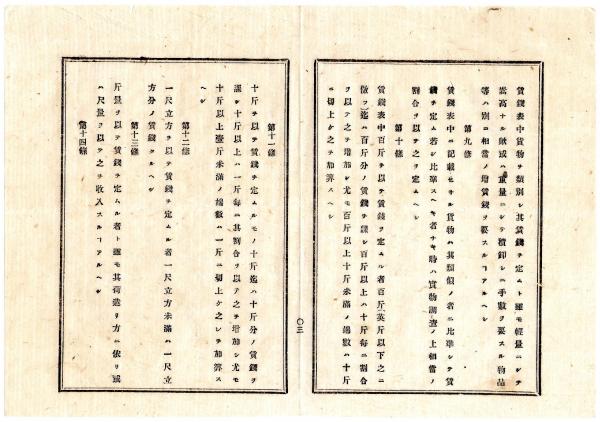 賃錢表中貨物ヲ類別シ其賃錢ヲ定ムト雖モ輕量ニシテ
嵩高ナル歟或ハ重量ニシテ積卸シニ手數ヲ要スル物品
等ハ別ニ相當ノ增賃錢ヲ要スルヿアルヘシ
第九條
賃錢表中ニ記載セサル貨物ハ其類似ノ者ニ比準シテ賃
錢ヲ定ム若シ比準スヘキ者ナキ時ハ實物調査ノ上相當ノ
割合ヲ以テ之ヲ定ムヘシ
第十條
賃錢表中百斤ヲ以テ賃錢ヲ定ムル者百斤(英斤以下之ニ
倣フ)迄ハ百斤分ノ賃錢ヲ課シ百斤以上ハ十斤每ニ割合
ヲ以テ之ヲ增加シ尤モ百斤以上十斤未滿ノ端數ハ十斤
ニ切上ケ之ヲ加算スヘシ
〇三
第十一條
十斤ヲ以テ賃錢ヲ定ムルモノ十斤迄ハ十斤分ノ賃錢ヲ
課シ十斤以上ハ一斤每ニ其割合ヲ以テ之ヲ增加シ尤モ
十斤以上壹斤未滿ノ端數ハ一斤ニ切上ケ之シテ加算ス
ヘシ
第十二條
一尺立方ヲ以テ賃錢ヲ定ムル者一尺立方未滿ハ一尺立
方分ノ賃錢タルヘシ
第十三條
斤量ヲ以テ賃錢ヲ定ムル者ト雖モ其荷造リ方ニ依リ或
ハ尺量ヲ以テ之ヲ收入スルヿアルヘシ
第十四條